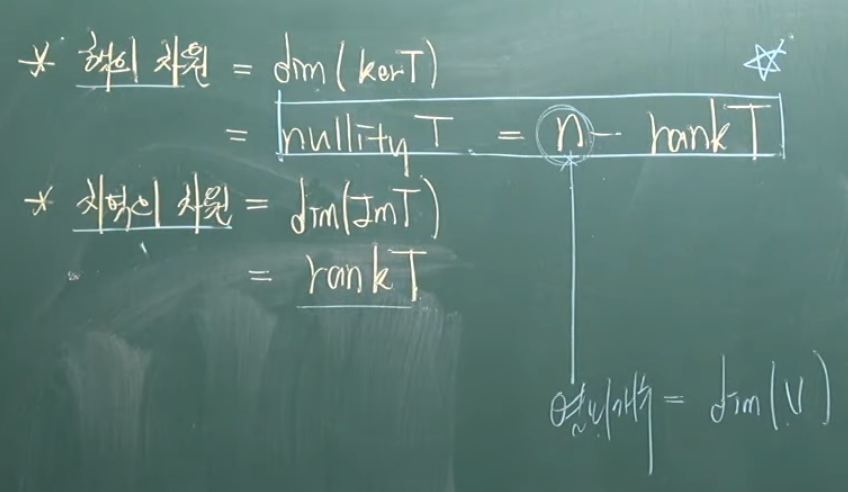 * 핵의 차원 = dim(kerT)
= nullity T = n - rank T ☆
* 치역의 차원 = dim(ImT)
= rank T
열의개수 = dim(V)